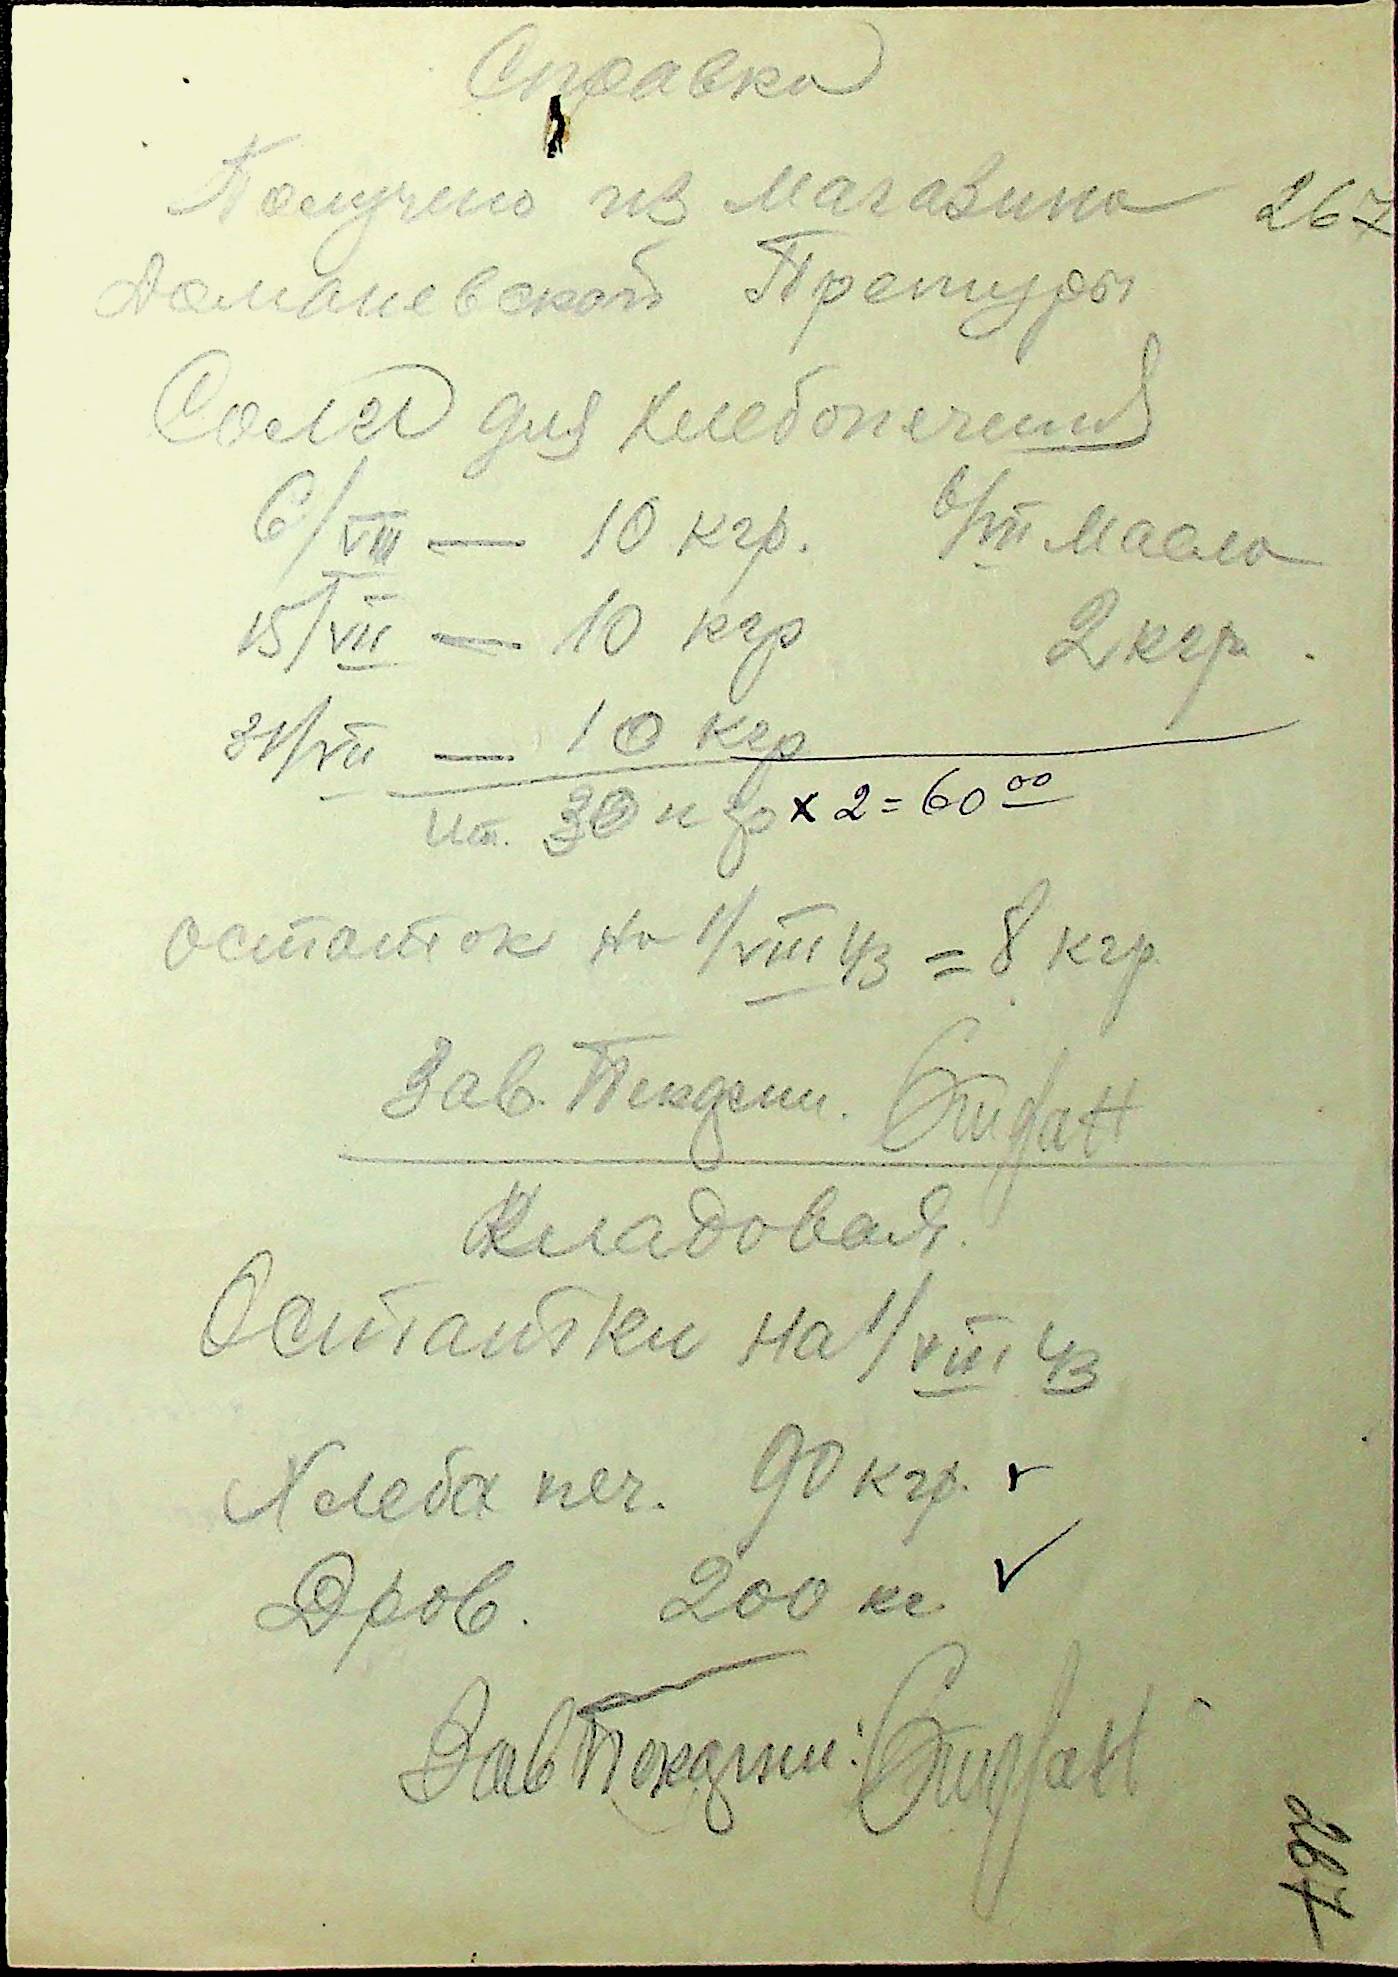 Справка
Получено из магазина 267
Доманевской Претуры
Соли для хлебопечения
6/VIII — 10 кгр. 6/VII Масло
15/VII — 10 кгр 2 кгр.
31/VII — 10 кгр
Ит. 30 кгр x 2 = 60 00
остаток на 1/VIII 43 = 8 кгр.
Зав.
Кладовая.
Остатки на 1/VIII 43
Хлеба печ. 90 кгр. v
Дров. 200 кг v
Зав
267